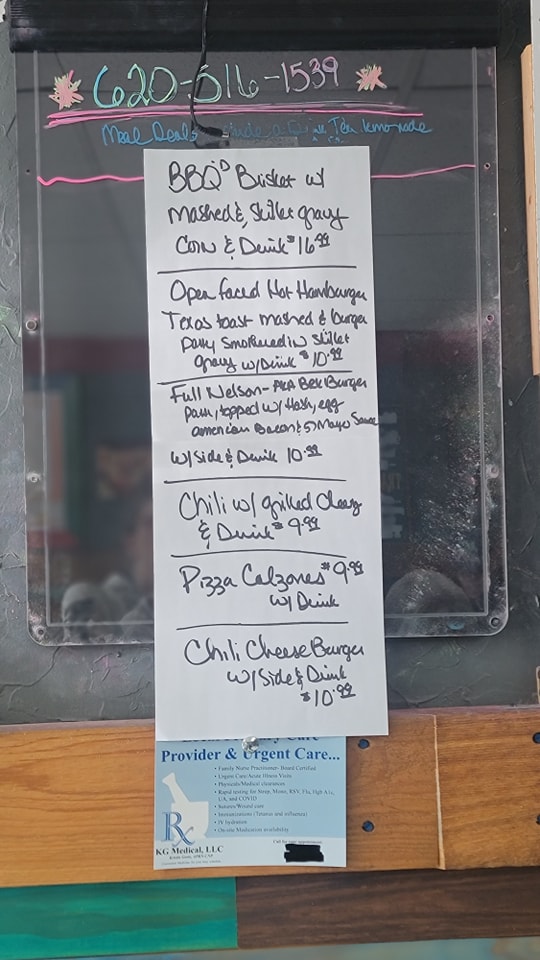 620-516-1539
Meal Deals Include a Drink Tea lemonade
BBQ'D Brisket w/
Mashed & Skillet gravy
Corn & Drink $16.99
Open faced Hot Hamburger
Texas toast mashed & burger
patty smothered in skillet
gravy w/Drink $10.99
Full Nelson - AKA Bex Burger
patty, topped w/ Hash, egg
american Bacon & Mayo Sauce
w/Side & Drink 10.99
Chili w/ grilled Cheese
& Drink $9.99
Pizza Calzones $9.99
w/ Drink
Chili Cheese Burger
w/ Side & Drink
$10.99
Care
Provider & Urgent Care...
• Family Nurse Practitioner- Board Certified
• Urgent Care/Acute Illness Visits
• Physicals/Medical clearances
• Rapid testing for Strep, Mono, RSV, Flu, High A1c,
UA, and COVID
• Sutures/Wound care
• Immunizations (Tetanus and influenza)
• IV hydration
• On-site Medication availability
Rx
KG Medical, LLC
Call for your appointment